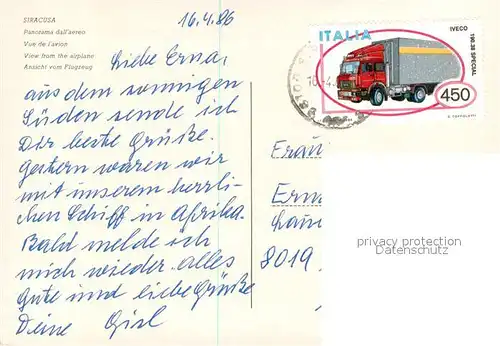 SIRACUSA
Panorama dall'aereo
Vue de l'avion
View from the airplane
Ansicht vom Flugzeug
16.4.86
Liebe Erna,
aus dem sonnigen
Süden sende ich
Dir beste Grüße.
Gestern waren wir
mit unserem herrli-
chen Schiff in Afrika.
Bald melde ich
mich wieder. alles
Gute und liebe Grüße
Deine Gisl
ITALIA
IVECO
190.38 SPECIAL
450
Frau
Erna
8019
privacy protection
Datenschutz